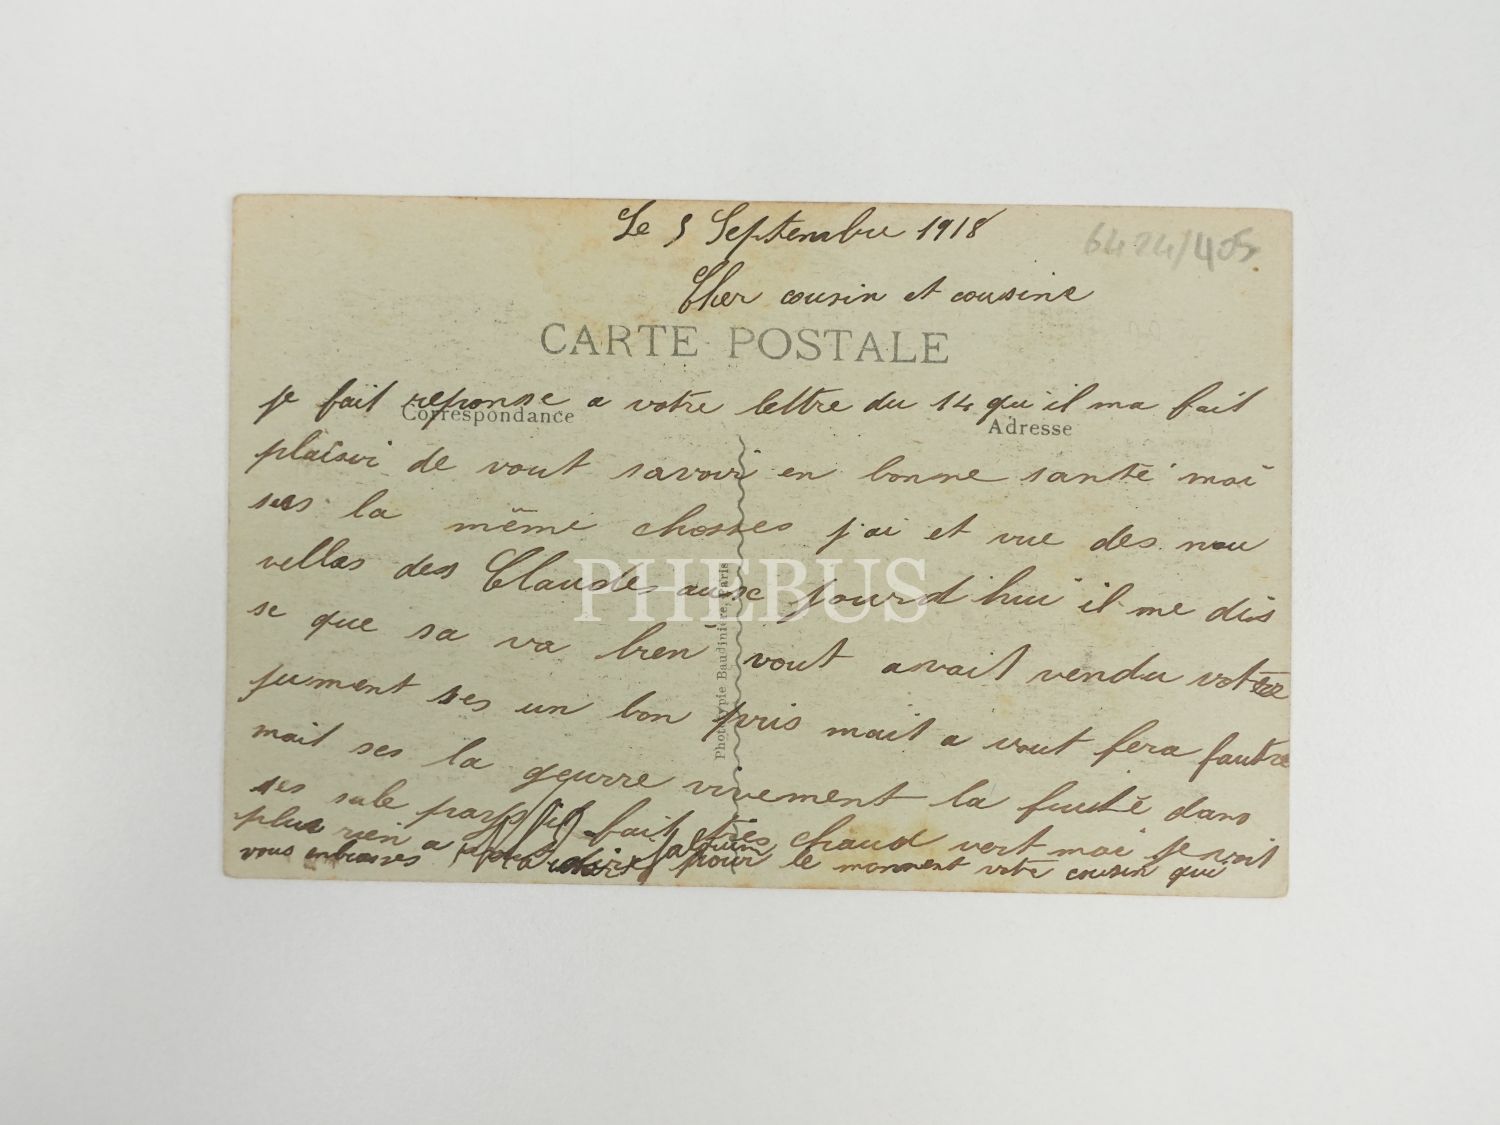 Le 5 Septembre 1918
6424/405
Cher cousin et cousine
CARTE POSTALE
Correspondance
Adresse
je fait reponse a votre lettre du 14 qu'il ma fait
plaisir de vout savoir en bonne santé moi
ses la même chosses j'ai et vue des nou
vellas des Claudes ausc jourd'hui il me dis
se que sa va bien vout avait vendu votre
jument ses un bon pris mait a vout fera fautre
mait ses la geurre vivement la fuité dans
ses sale pays il fait très chaud vert moi je voit
plus rien a dire pour le monment votre cousin qui
vous enbrasses
Phototypie Baudinière, Paris
PHEBUS